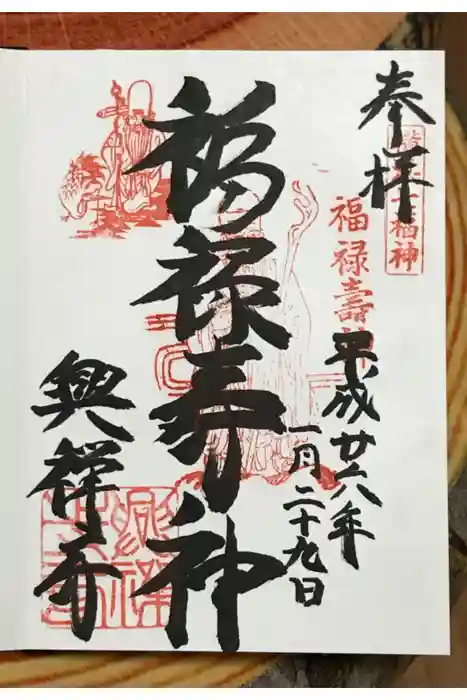 奉拝
七福神
福禄壽神
平成廿六年
一月二十九日
福禄寿神
興禅寺